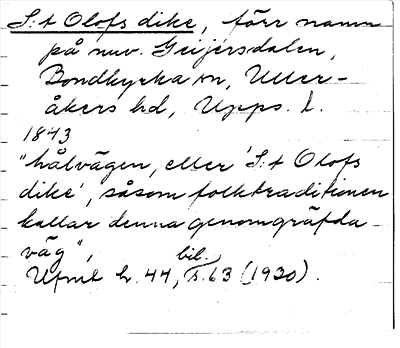 S:t Olofs dike, förr namn
på nuv. Geijersdalen,
Bondkyrka sn, Uller-
åkers hd, Upps. l.
1843
"hålvägen, eller 'S:t Olofs
dike', såsom folktraditionen
kallar denna genomgräfda
väg",
Ufmt h. 44, bil. s. 63 (1930).